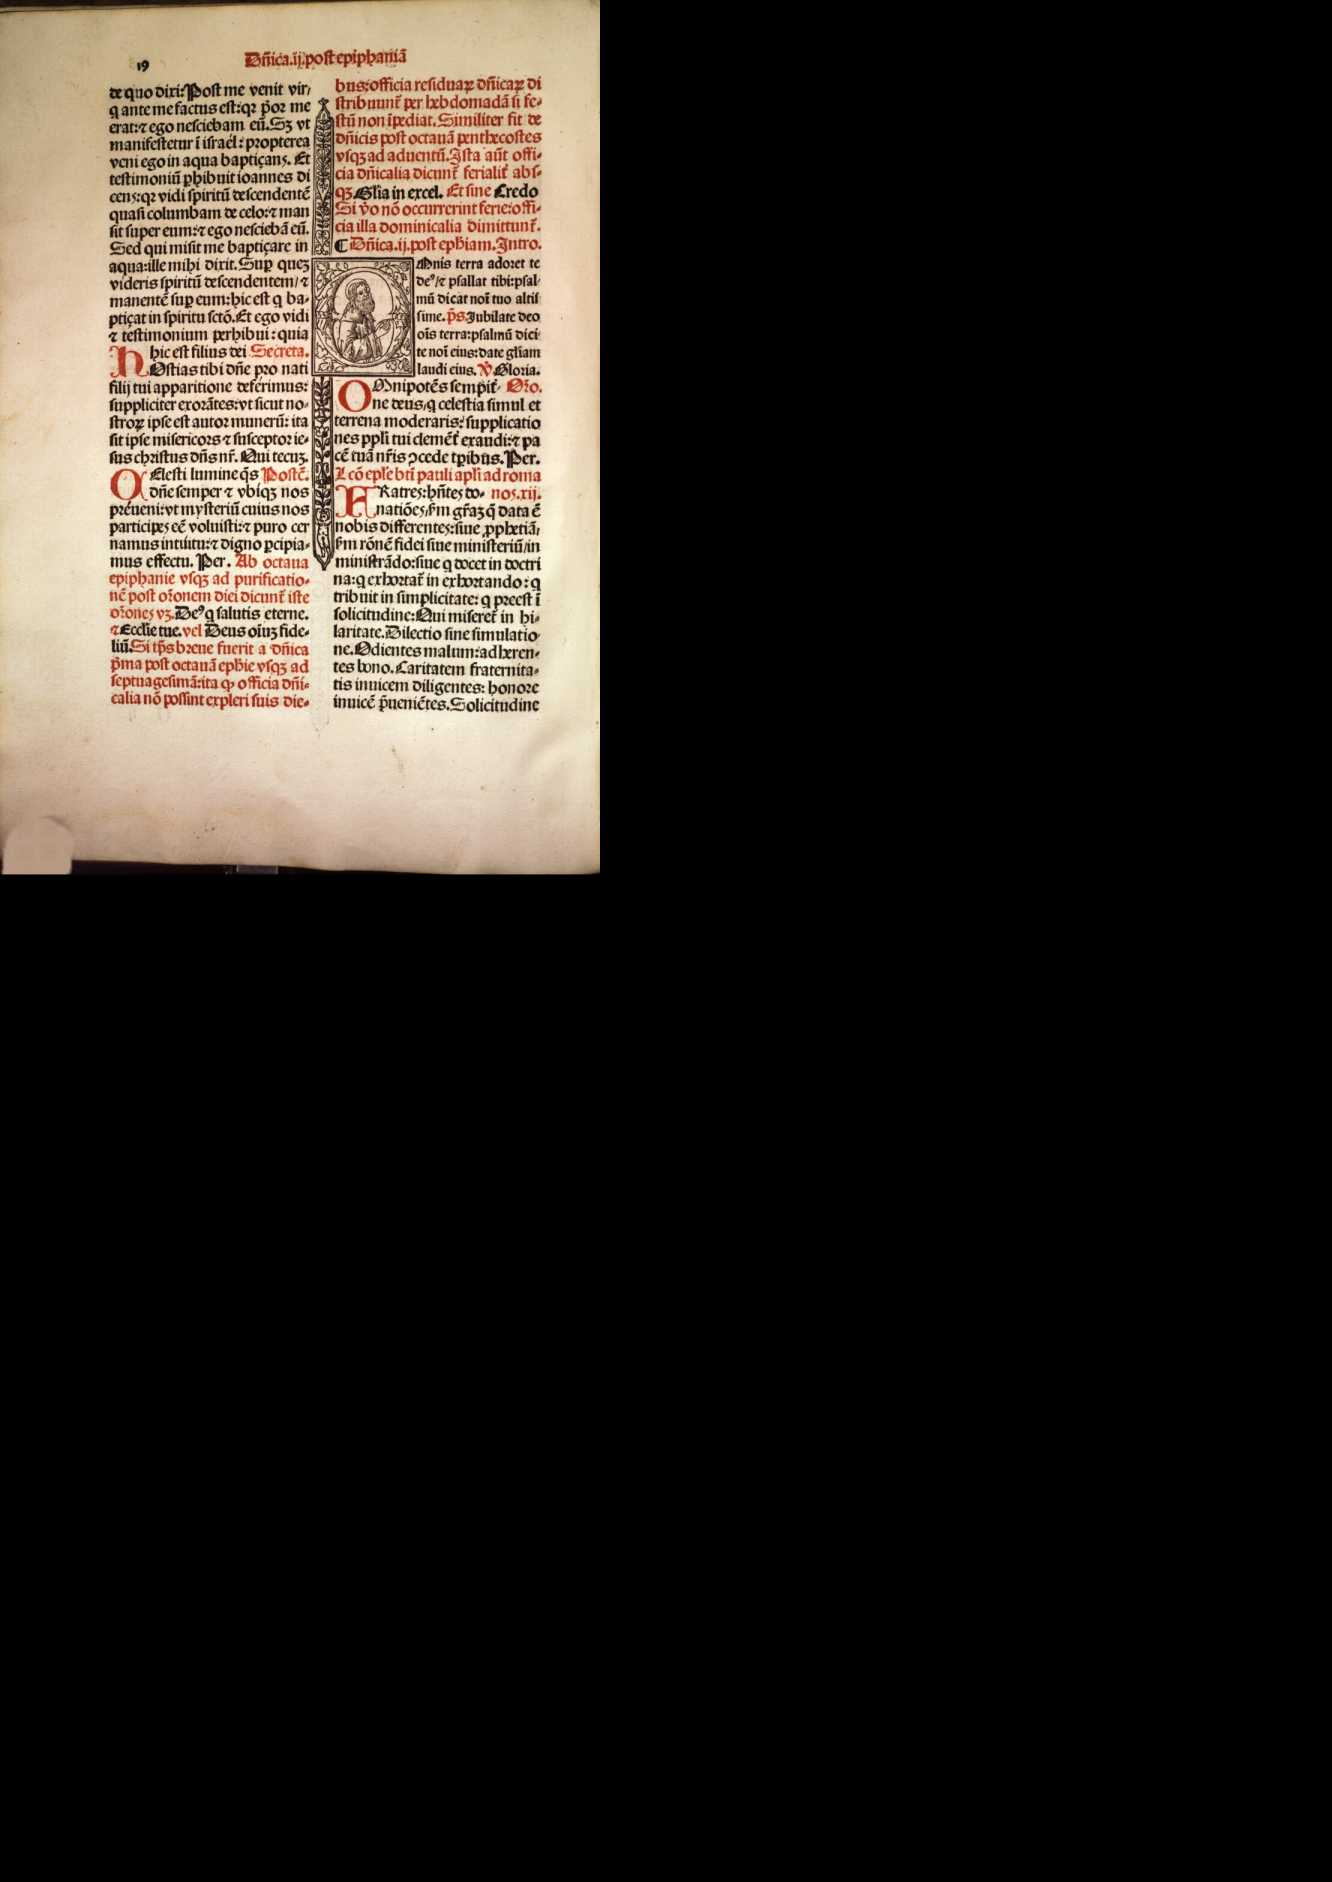 19
Dñica.ij.post epiphaniā
de quo dixi: Post me venit vir/
q̄ ante me factus est: qꝛ p̄or me
erat: ⁊ ego nesciebam eū. Sꝫ vt
manifestetur ī israel: propterea
veni ego in aqua baptiçanꝭ. Et
testimoniū ꝑhibuit ioannes di
cenꝭ: qꝛ vidi spiritū descendentē
quasi columbam de celo: ⁊ man
sit super eum: ⁊ ego nesciebā eū.
Sed qui misit me baptiçare in
aqua: ille mihi dixit. Suꝑ queꝫ
videris spiritū descendentem/ ⁊
manentē suꝑ eum: hic est q̄ ba-
ptiçat in spiritu sctō. Et ego vidi
⁊ testimonium perhibui: quia
hic est filius dei Secreta.
HOstias tibi dñe pro nati
filij tui apparitione deferimus:
suppliciter exorātes: vt sicut no-
stroꝝ ipse est autor munerū: ita
sit ipse misericors ⁊ susceptor ie-
sus christus dñs nr̄. Qui tecuꝫ.
CElesti lumine q̄s Postc̄.
dñe semper ⁊ vbiqꝫ nos
preueni: vt mysteriū cuius nos
participeꝭ eē voluisti: ⁊ puro cer
namus intuitu: ⁊ digno ꝑcipia-
mus effectu. Per. Ab octaua
epiphanie vsqꝫ ad purificatio-
nē post or̄onem diei dicunt̄ iste
or̄oneꝭ vꝫ. Deꝰ q̄ salutis eterne.
⁊ Eccl̄ie tue. vel Deus oīuꝫ fide-
liū. Si tp̄s breue fuerit a dñica
p̄ma post octauā eph̄ie vsqꝫ ad
septuagesimā: ita qꝙ officia dñi-
calia nō possint expleri suis die-
bus: officia residuaꝝ dñicaꝝ di
stribuunt̄ per hebdomadā si fe-
stū non īpediat. Similiter fit de
dñicis post octauā penthecostes
vsqꝫ ad aduentū. Ista aūt offi-
cia dñicalia dicunt̄ ferialit̄ abs-
qꝫ Gl̄ia in excel. Et sine Credo
Si v̄o nō occurrerint ferie: offi-
cia illa dominicalia dimittunt̄.
¶ Dñica.ij.post eph̄iam. Intro.
OMnis terra adoret te
deꝰ/ ⁊ psallat tibi: psal-
mū dicat noī tuo altis
sime. p̄s. Iubilate deo
oīs terra: psalmū dici-
te noī eius: date gl̄iam
laudi eius. ℣ Gloria.
OMnipotēs sempit̄- Oro.
ne deus/ q̄ celestia simul et
terrena moderaris: supplicatio
nes ppl̄i tui clemēt̄ exaudi: ⁊ pa
cē tuā nr̄is ꝯcede tp̄ibus. Per.
Lcō ep̄le bt̄i pauli apl̄i ad roma
FRatreꝭ: hñteꝭ do- noꝭ.xij.
nationēꝭ/ ẜm gr̄aꝫ q̄ data ē
nobis differenteꝭ: siue ꝓphetiā/
ẜm rōnē fidei siue ministeriū/ in
ministrādo: siue q̄ docet in doctri
na: q̄ exhortat̄ in exhortando: q̄
tribuit in simplicitate: q̄ preest ī
solicitudine: Qui miseret̄ in hi-
laritate. Dilectio sine simulatio
ne. Odientes malum: adheren-
tes bono. Caritatem fraternita-
tis inuicem diligentes: honore
inuicē p̄ueniētes. Solicitudine